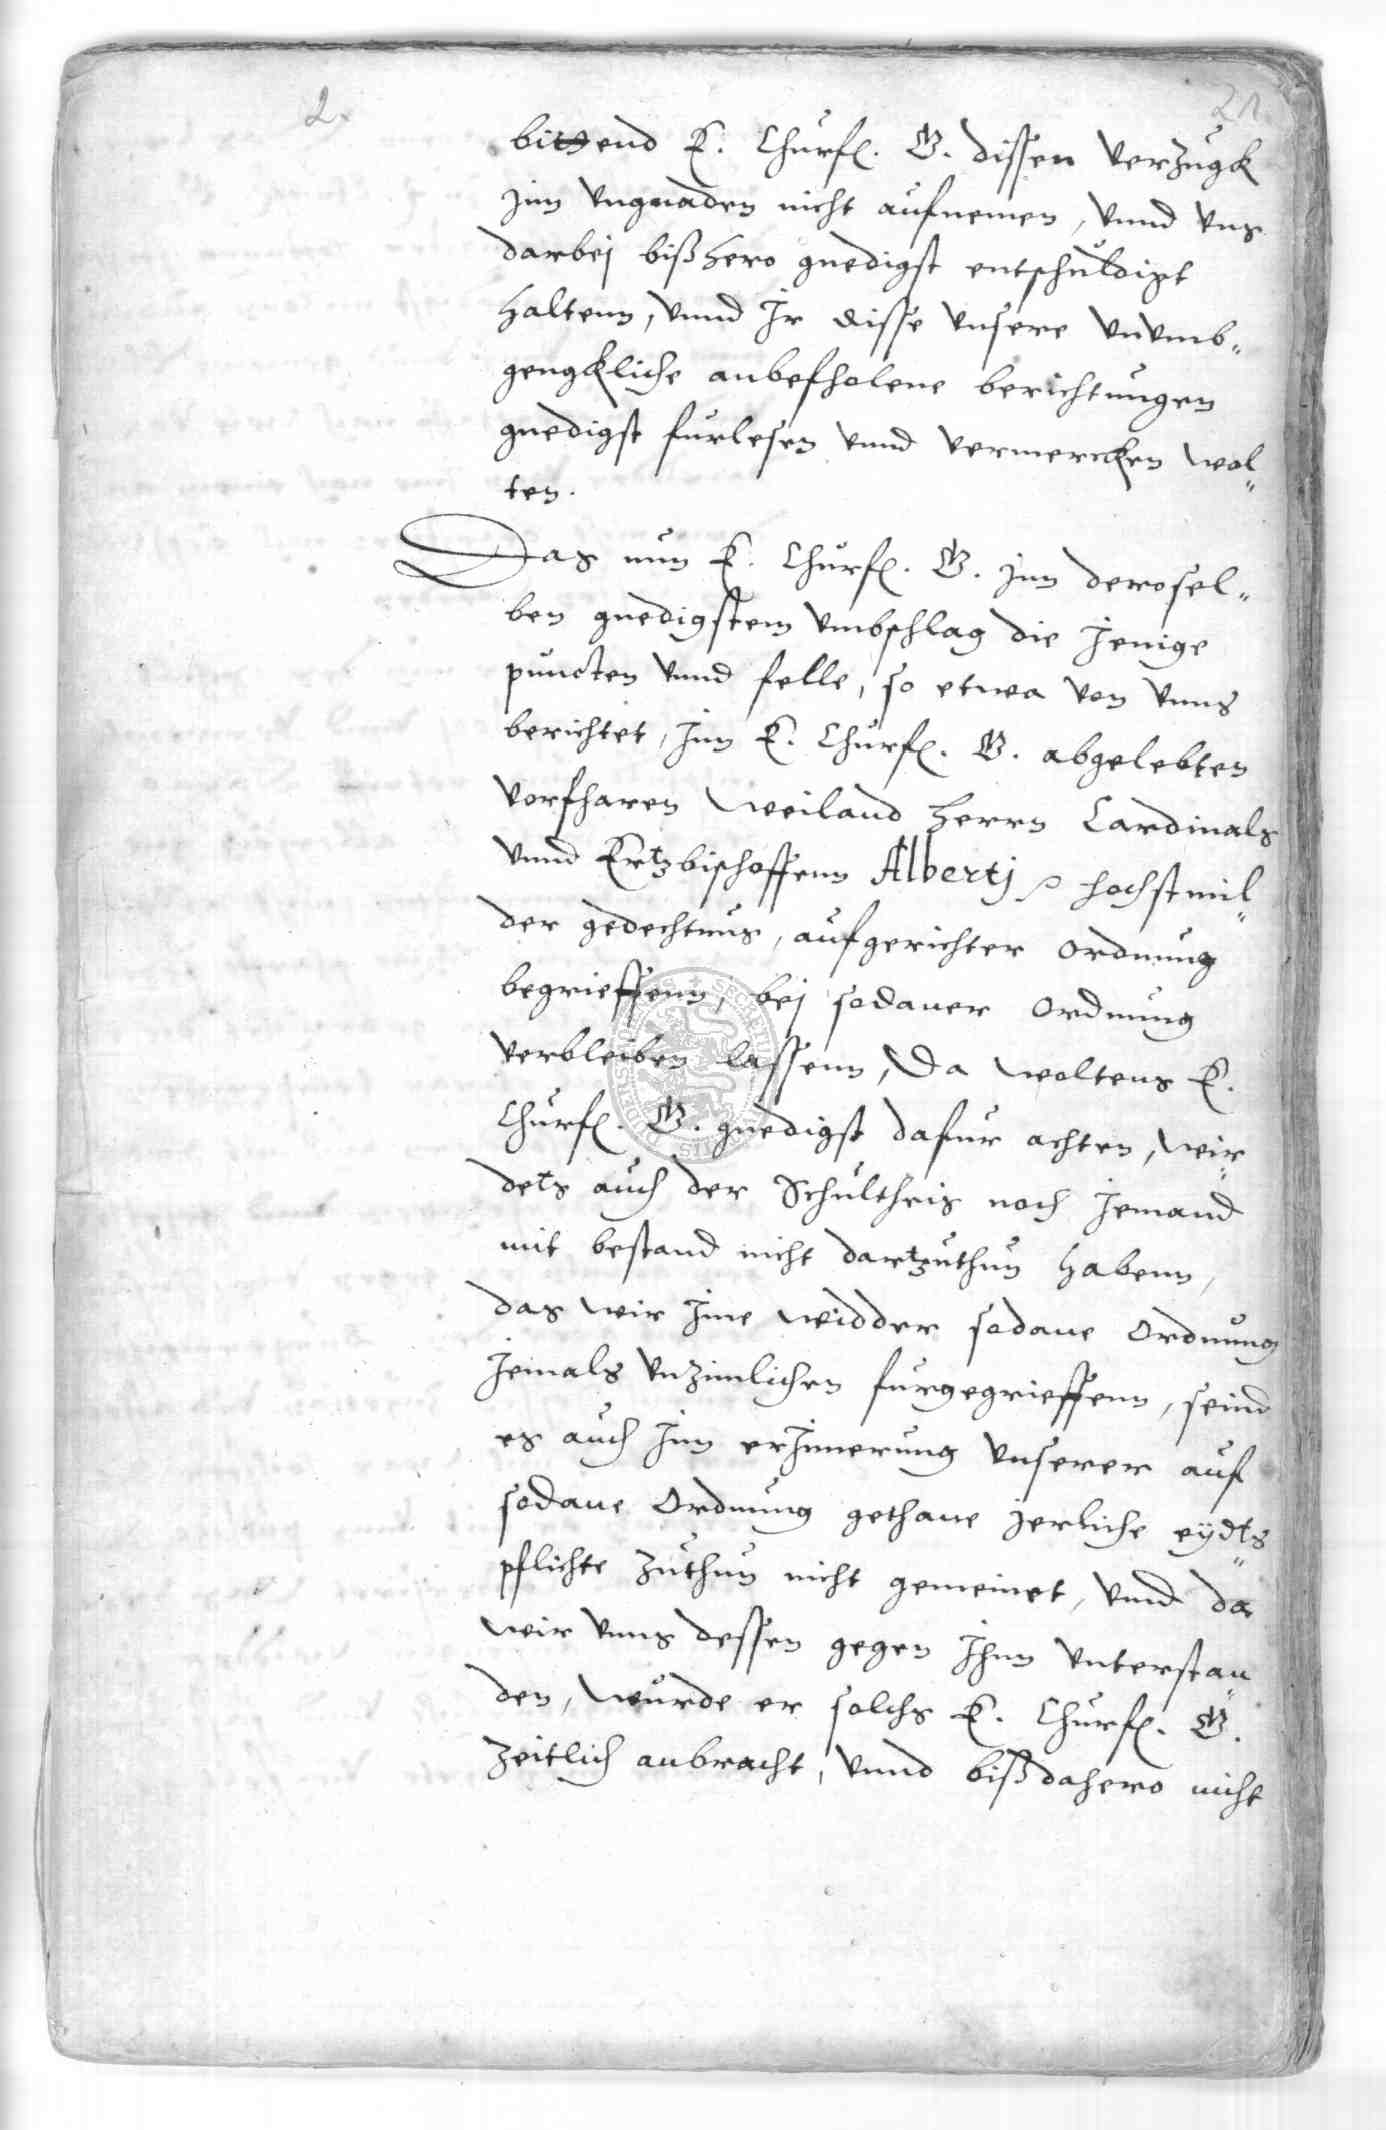 2.
21.
bittend E. Churf. G. dissen verzugk
jnn vngnaden nicht aufnemen, vnnd vns
darbej bißhero gnedigst entschuldigt
haltenn, vnnd Jr disse vnsere vnvmb„
gengkliche anbefholene berichtungen
gnedigst furlesen vnnd vermercken wol„
ten.
Das nun E. Churf. G. jnn derosel„
ben gnedigstem vmbschlag die Jenige
puncten vnnd felle, so etwa von vnns
berichtet, Jnn E. Churf. G. abgelebten
vorfharen weiland Herrn Cardinals
vnnd Ertzbischoffenn Albertj hochstmil„
der gedechtnus, aufgerichter ordnung
begrieffenn, bej sodaner Ordnung
verbleiben lassenn, Da woltens E.
Churf. G. gnedigst dafur achten, wir„
dets auch der Schultheis noch Jemand
mit bestand nicht dartzuthun habenn,
das wir Jme widder sodane Ordnung
Jemals vnzimlichen furgegrieffenn, seind
es auch Jnn erJnnerung vnserer auf
sodane Ordnung gethane jerliche eÿdts„
pflichte zuthun nicht gemeinet, vnnd da
wir vnns dessen gegen Jhnn vnterstan„
den, wurde er solchs E. Churf. G.
zeitlich anbracht, vnnd bißdahero nicht